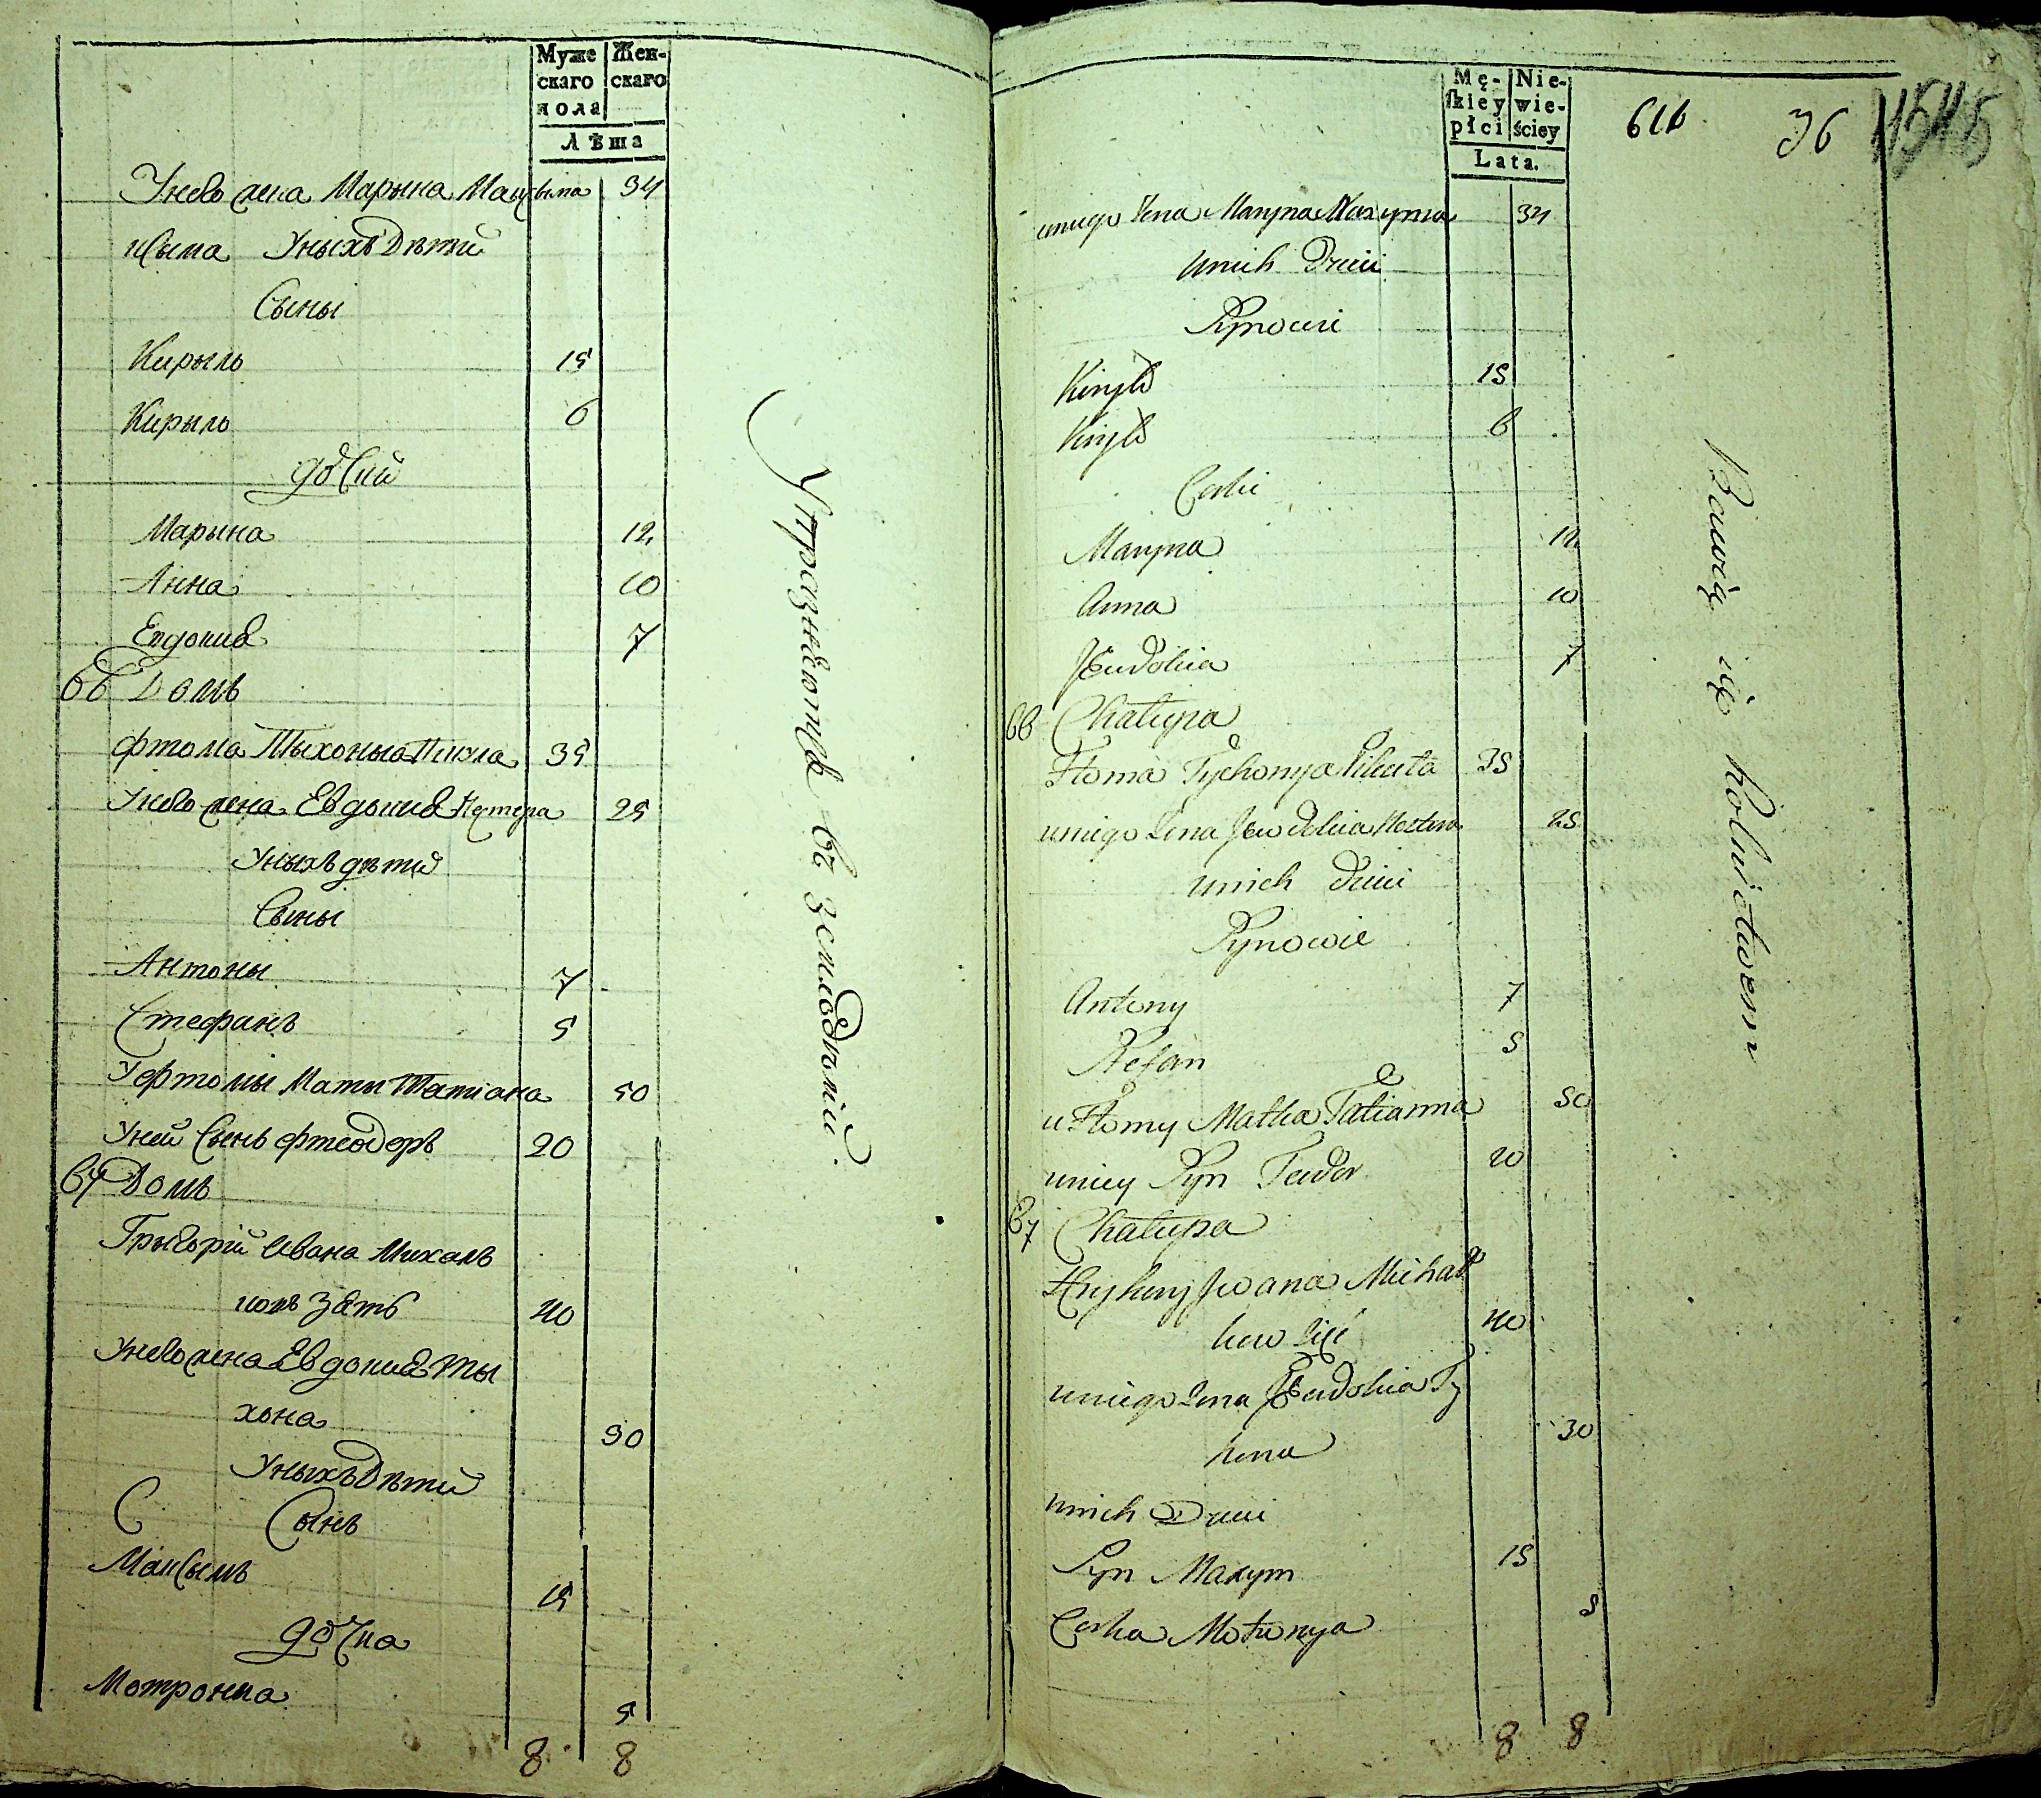 Муже Жен-
скаго скаго
пола
Лѣта
Унего жена Марына Макъсыма 34
Уныхъ Дѣтей
Сыны
Кирыло 15
Кирыло 6
дочки
Марына 12
Анна 10
Евдокия 7
66 Домъ
Фтома Тыхоныа 35
Унего жена Евдокия Нестера 25
Уныхъ дѣтей
Сыны
Антоны 7
Стефанъ 5
У Фтомы Маты Татиана 50
Уней Сынъ Фтеодоръ 20
67 Домъ
Грыгорий Ивана Михаль
ковъ Зять 40
Унего жена Евдокия Ты
хона 30
Уныхъ Дѣтей
С Сынъ
Максымъ 15
дочка
Мотронна 5
8 8
Упразняютса въ Земледѣлии.
Mę- Nie-
skiey wie-
płci ściey
Lata.
616 36
uniego Zona Maryna Maxyma 34
unich Dzieci
Synowie
Kiryło 15
Kiryło 6
Corki
Maryna 12
Anna 10
Jewdokia 7
66 Chałupa
Ftoma Tychonya Pikuta 35
uniego Zona Jewdokia Nestera 25
unich dzieci
Synowie
Antony 7
Stefan 5
u Ftomy Matka Tatianna 50
uniey Syn Teodor 20
67 Chałupa
Hryhory Jwana Michał
kow Zięć 40
uniego Zona Jewdokia Ty
hona 30
unich Dzieci
Syn Maxym 15
Corka Motronya 5
8 8
Bawią się Rolnictwem